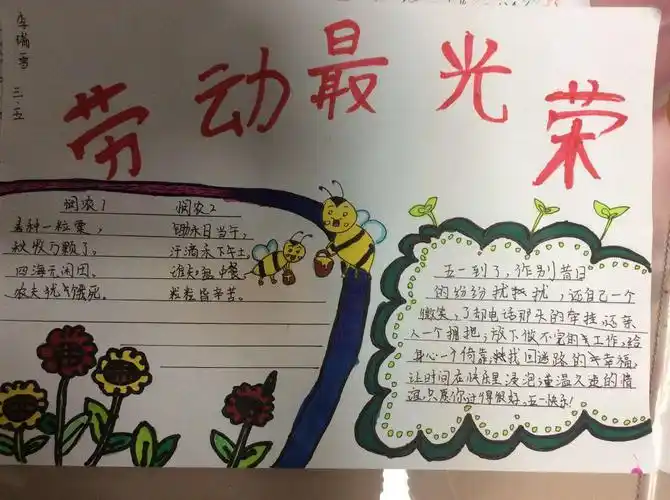 李瑞雪 三.五
劳动最光荣
悯农1 悯农2
春种一粒粟， 锄禾日当午，
秋收万颗子。 汗滴禾下午土
四海无闲田， 谁知盘中餐
农夫犹饿死。 粒粒皆辛苦。
五一到了，作别昔日
的纷纷扰扰，还自己一个
微笑，了却电话那头的牵挂，还亲
人一个拥抱，放下做不完的工作，给
身心一个倚靠，找回迷路的幸福，
让时间在快乐里浸泡
的情
谊，只愿你过得很好，五一快乐！